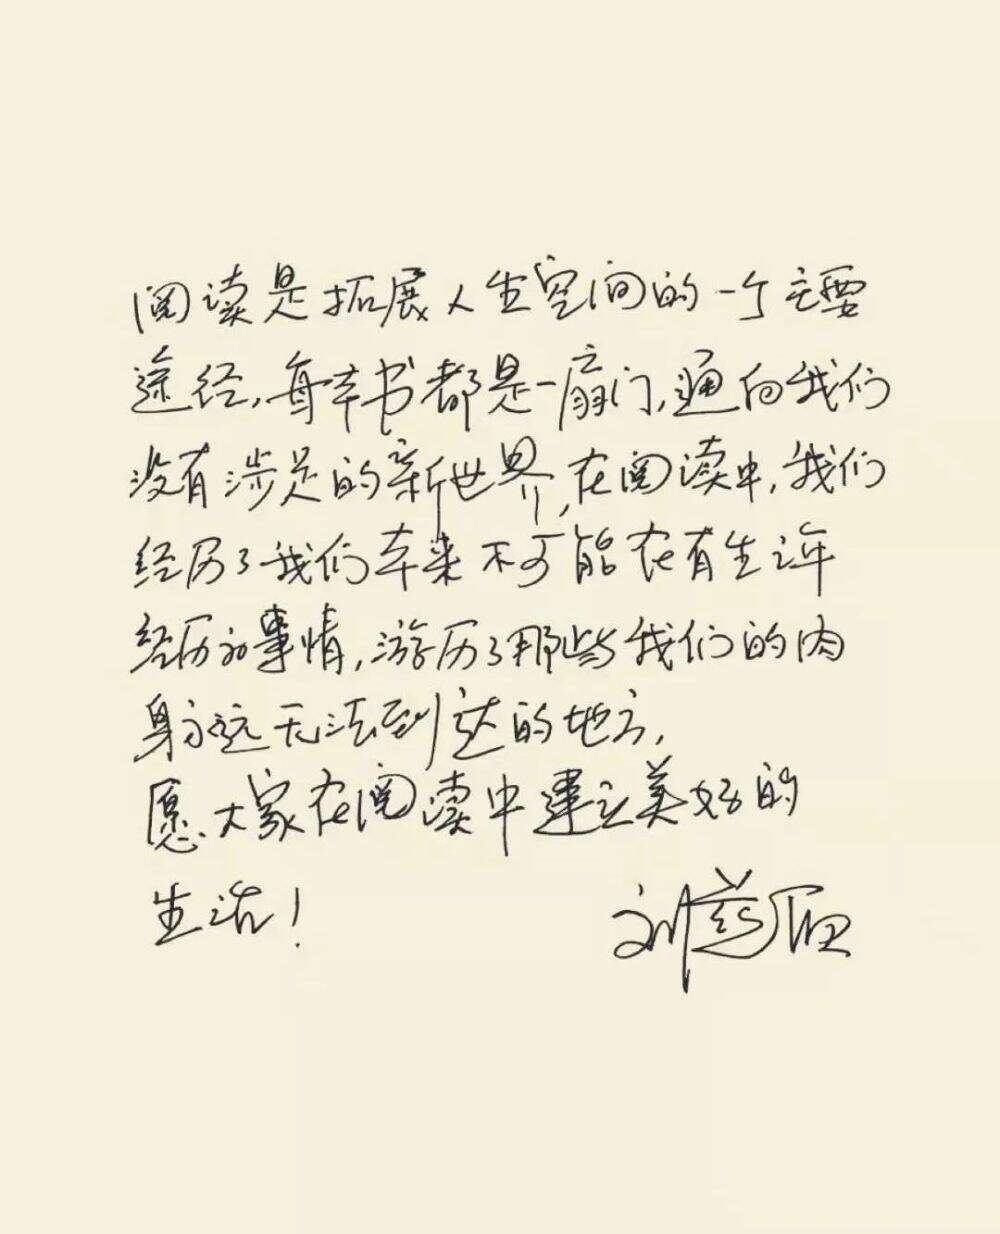 阅读是拓展人生空间的一个主要
途径,每本书都是一扇门,通向我们
没有涉足的新世界,在阅读中,我们
经历了我们本来不可能在有生之年
经历的事情,游历了那些我们的肉
身永远无法到达的地方,
愿大家在阅读中建立美好的
生活!
刘慈欣